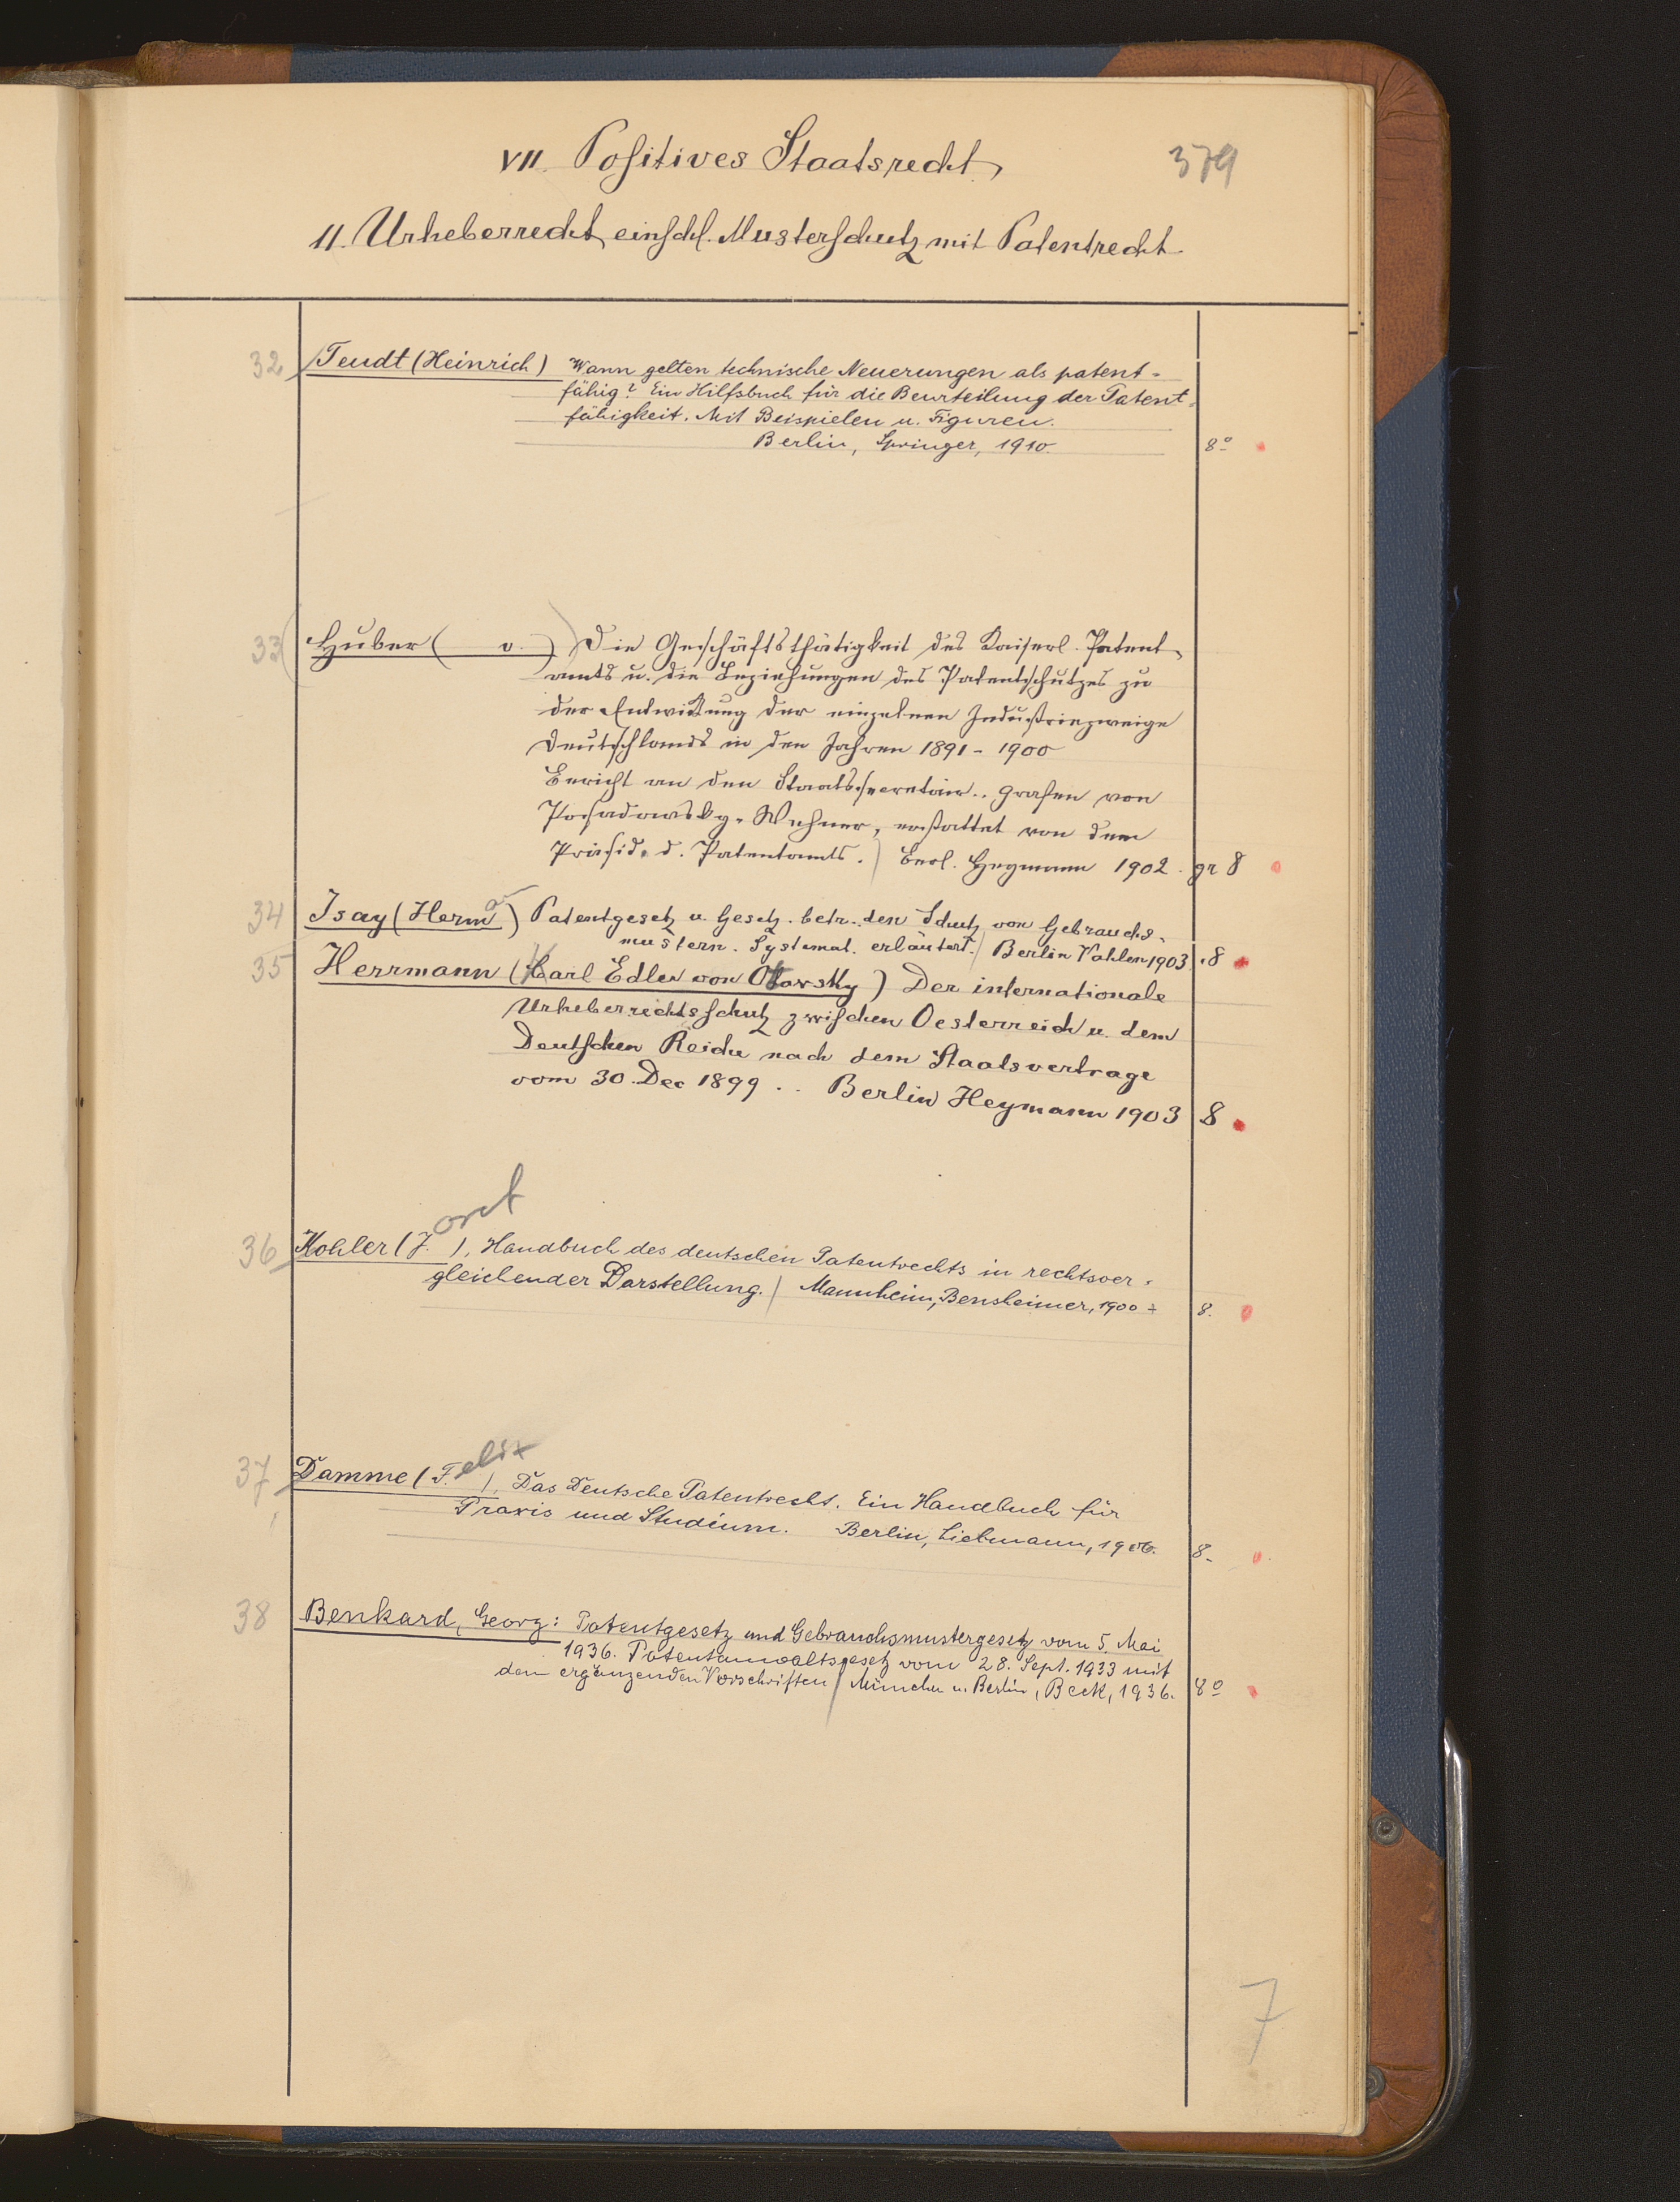 VII. Positives Staatsrecht 379
11. Urheberrecht einschl. Musterschutz mit Patentrecht
32 Teudt (Heinrich) Wann gelten technische Neuerungen als patent-
fähig? Ein Hilfsbuch für die Beurteilung der Patent-
fähigkeit. Mit Beispielen u. Figuren.
Berlin, Springer, 1910. 8°
33 Huber ( v. ) Die Geschäftsthätigkeit des Kaiserl. Patent-
amts u. die Beziehungen des Patentschutzes zu
der Entwicklung der einzelnen Industriezweige
Deutschlands in den Jahren 1891 - 1900
Bericht an den Staatssecretair .. Grafen von
Posadowsky-Wehner, erstattet von dem
Präsid. d. Patentamts. Berl. Heymann 1902. gr 8
34 Isay (Herma) Patentgesetz u. Gesetz. betr. den Schutz von Gebrauchs-
mustern. Systemat. erläutert. Berlin Vahlen 1903. 8
35 Herrmann (Karl Edler von Otavsky) Der internationale
Urheberrechtsschutz zwischen Oesterreich u. dem
Deutschen Reiche nach dem Staatsvertrage
vom 30. Dec 1899 .. Berlin Heymann 1903 8
36 Kohler (J. ), Handbuch des deutschen Patentrechts in rechtsver-
gleichender Darstellung. Mannheim, Bensheimer, 1900 8.
37 Damme (Felix), Das Deutsche Patentrecht. Ein Handbuch für
Praxis und Studium. Berlin, Liebmann, 1906. 8.
38 Benkard, Georg: Patentgesetz und Gebrauchsmustergesetz vom 5. Mai
1936. Patentanwaltsgesetz vom 28. Sept. 1933 mit
den ergänzenden Vorschriften München u. Berlin, Beck, 1936. 8°
7